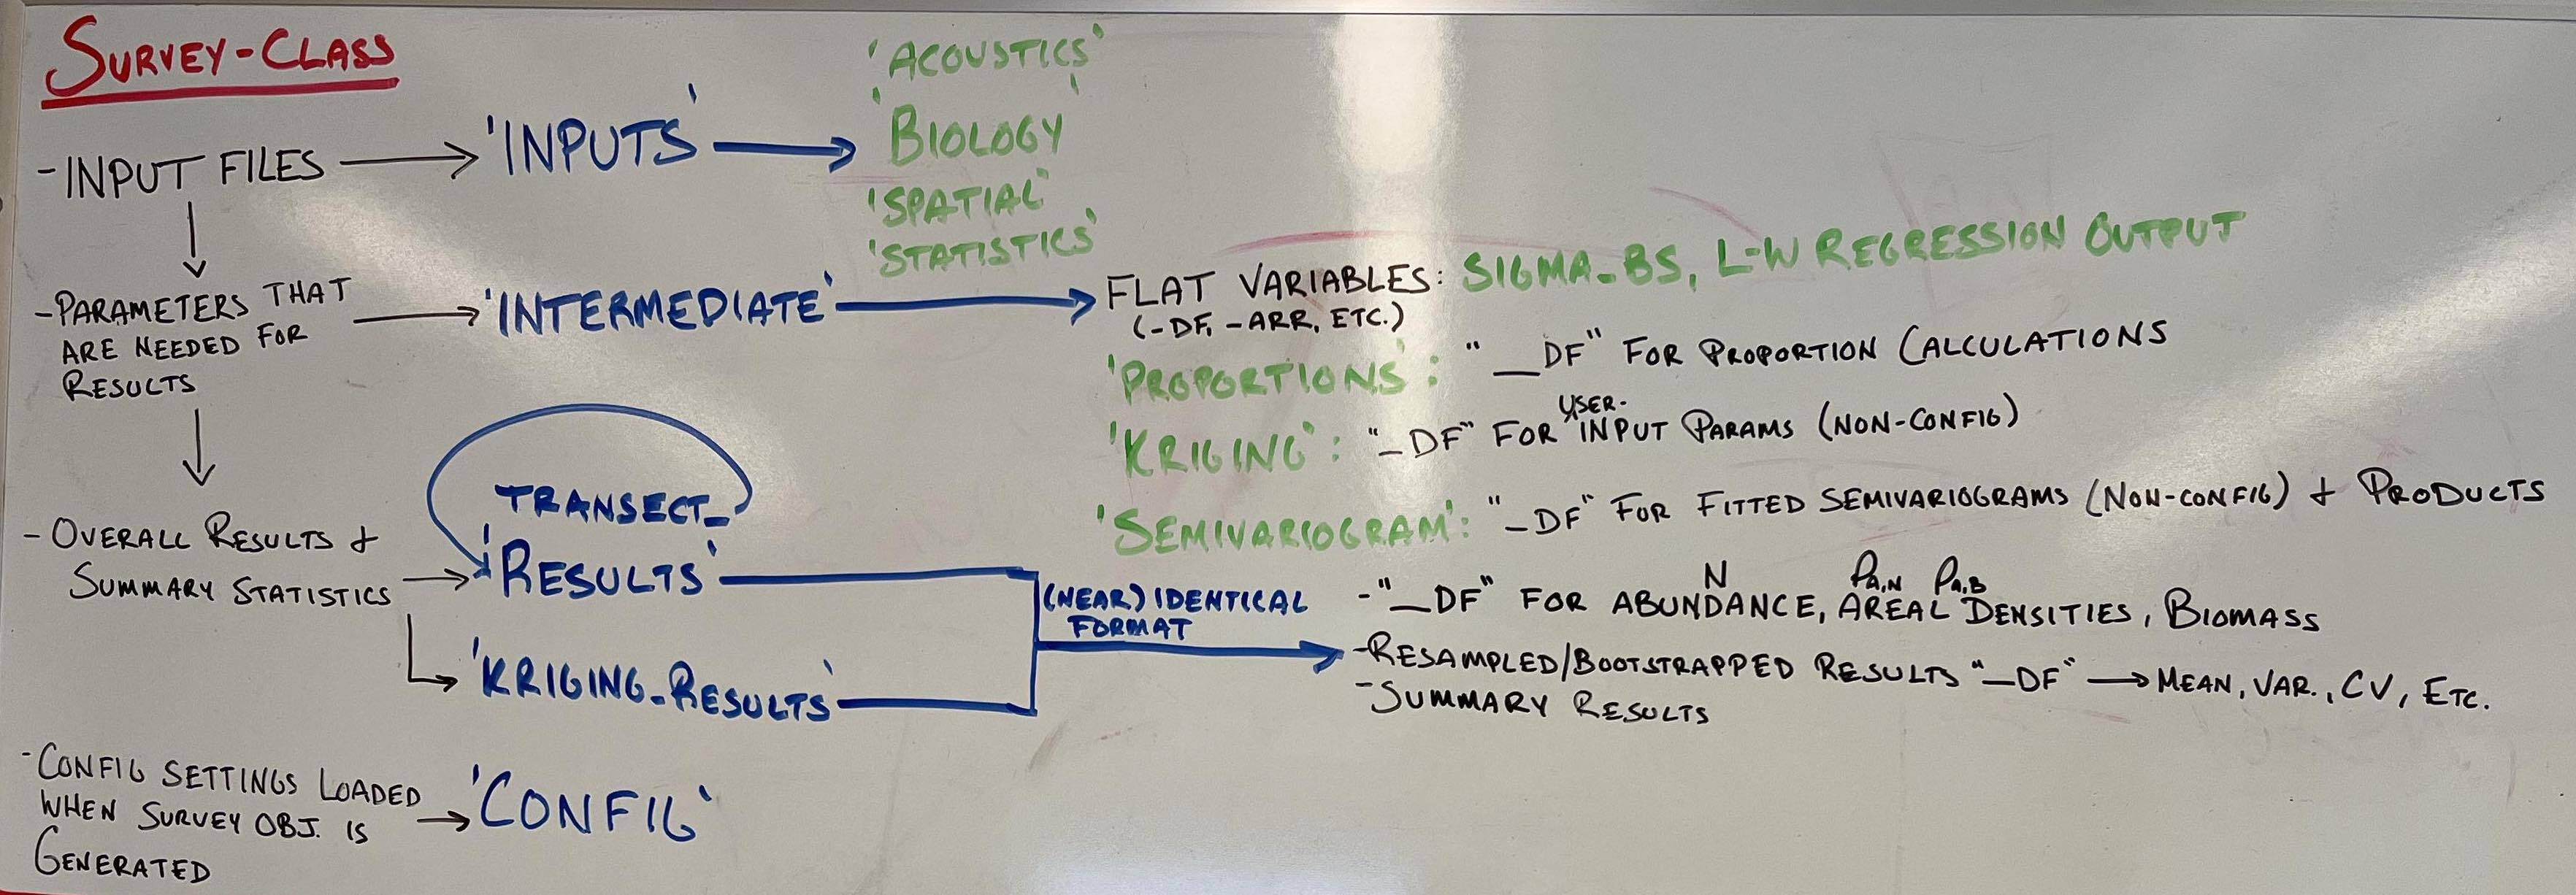 SURVEY-CLASS
-INPUT FILES → 'INPUTS' →
'ACOUSTICS'
'BIOLOGY'
'SPATIAL'
'STATISTICS'
-PARAMETERS THAT
ARE NEEDED FOR
RESULTS
→ 'INTERMEDIATE' →
FLAT VARIABLES: SIGMA_BS, L-W REGRESSION OUTPUT
(-DF, -ARR, ETC.)
'PROPORTIONS': "__DF" FOR PROPORTION CALCULATIONS
USER-
'KRIGING': "_DF" FOR INPUT PARAMS (NON-CONFIG)
'SEMIVARIOGRAM': "_DF" FOR FITTED SEMIVARIOGRAMS (NON-CONFIG) + PRODUCTS
- OVERALL RESULTS +
SUMMARY STATISTICS
TRANSECT_
'RESULTS'
'KRIGING_RESULTS'
(NEAR) IDENTICAL
FORMAT
N ρA,N ρA,B
-"__DF" FOR ABUNDANCE, AREAL DENSITIES, BIOMASS
-RESAMPLED/BOOTSTRAPPED RESULTS "__DF" → MEAN, VAR., CV, ETC.
-SUMMARY RESULTS
-CONFIG SETTINGS LOADED
WHEN SURVEY OBJ. IS
GENERATED
→ 'CONFIG'